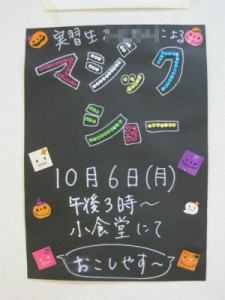 実習生 による
マジック
ショー
10月6日(月)
午後3時〜
小食堂にて
おこしやす〜